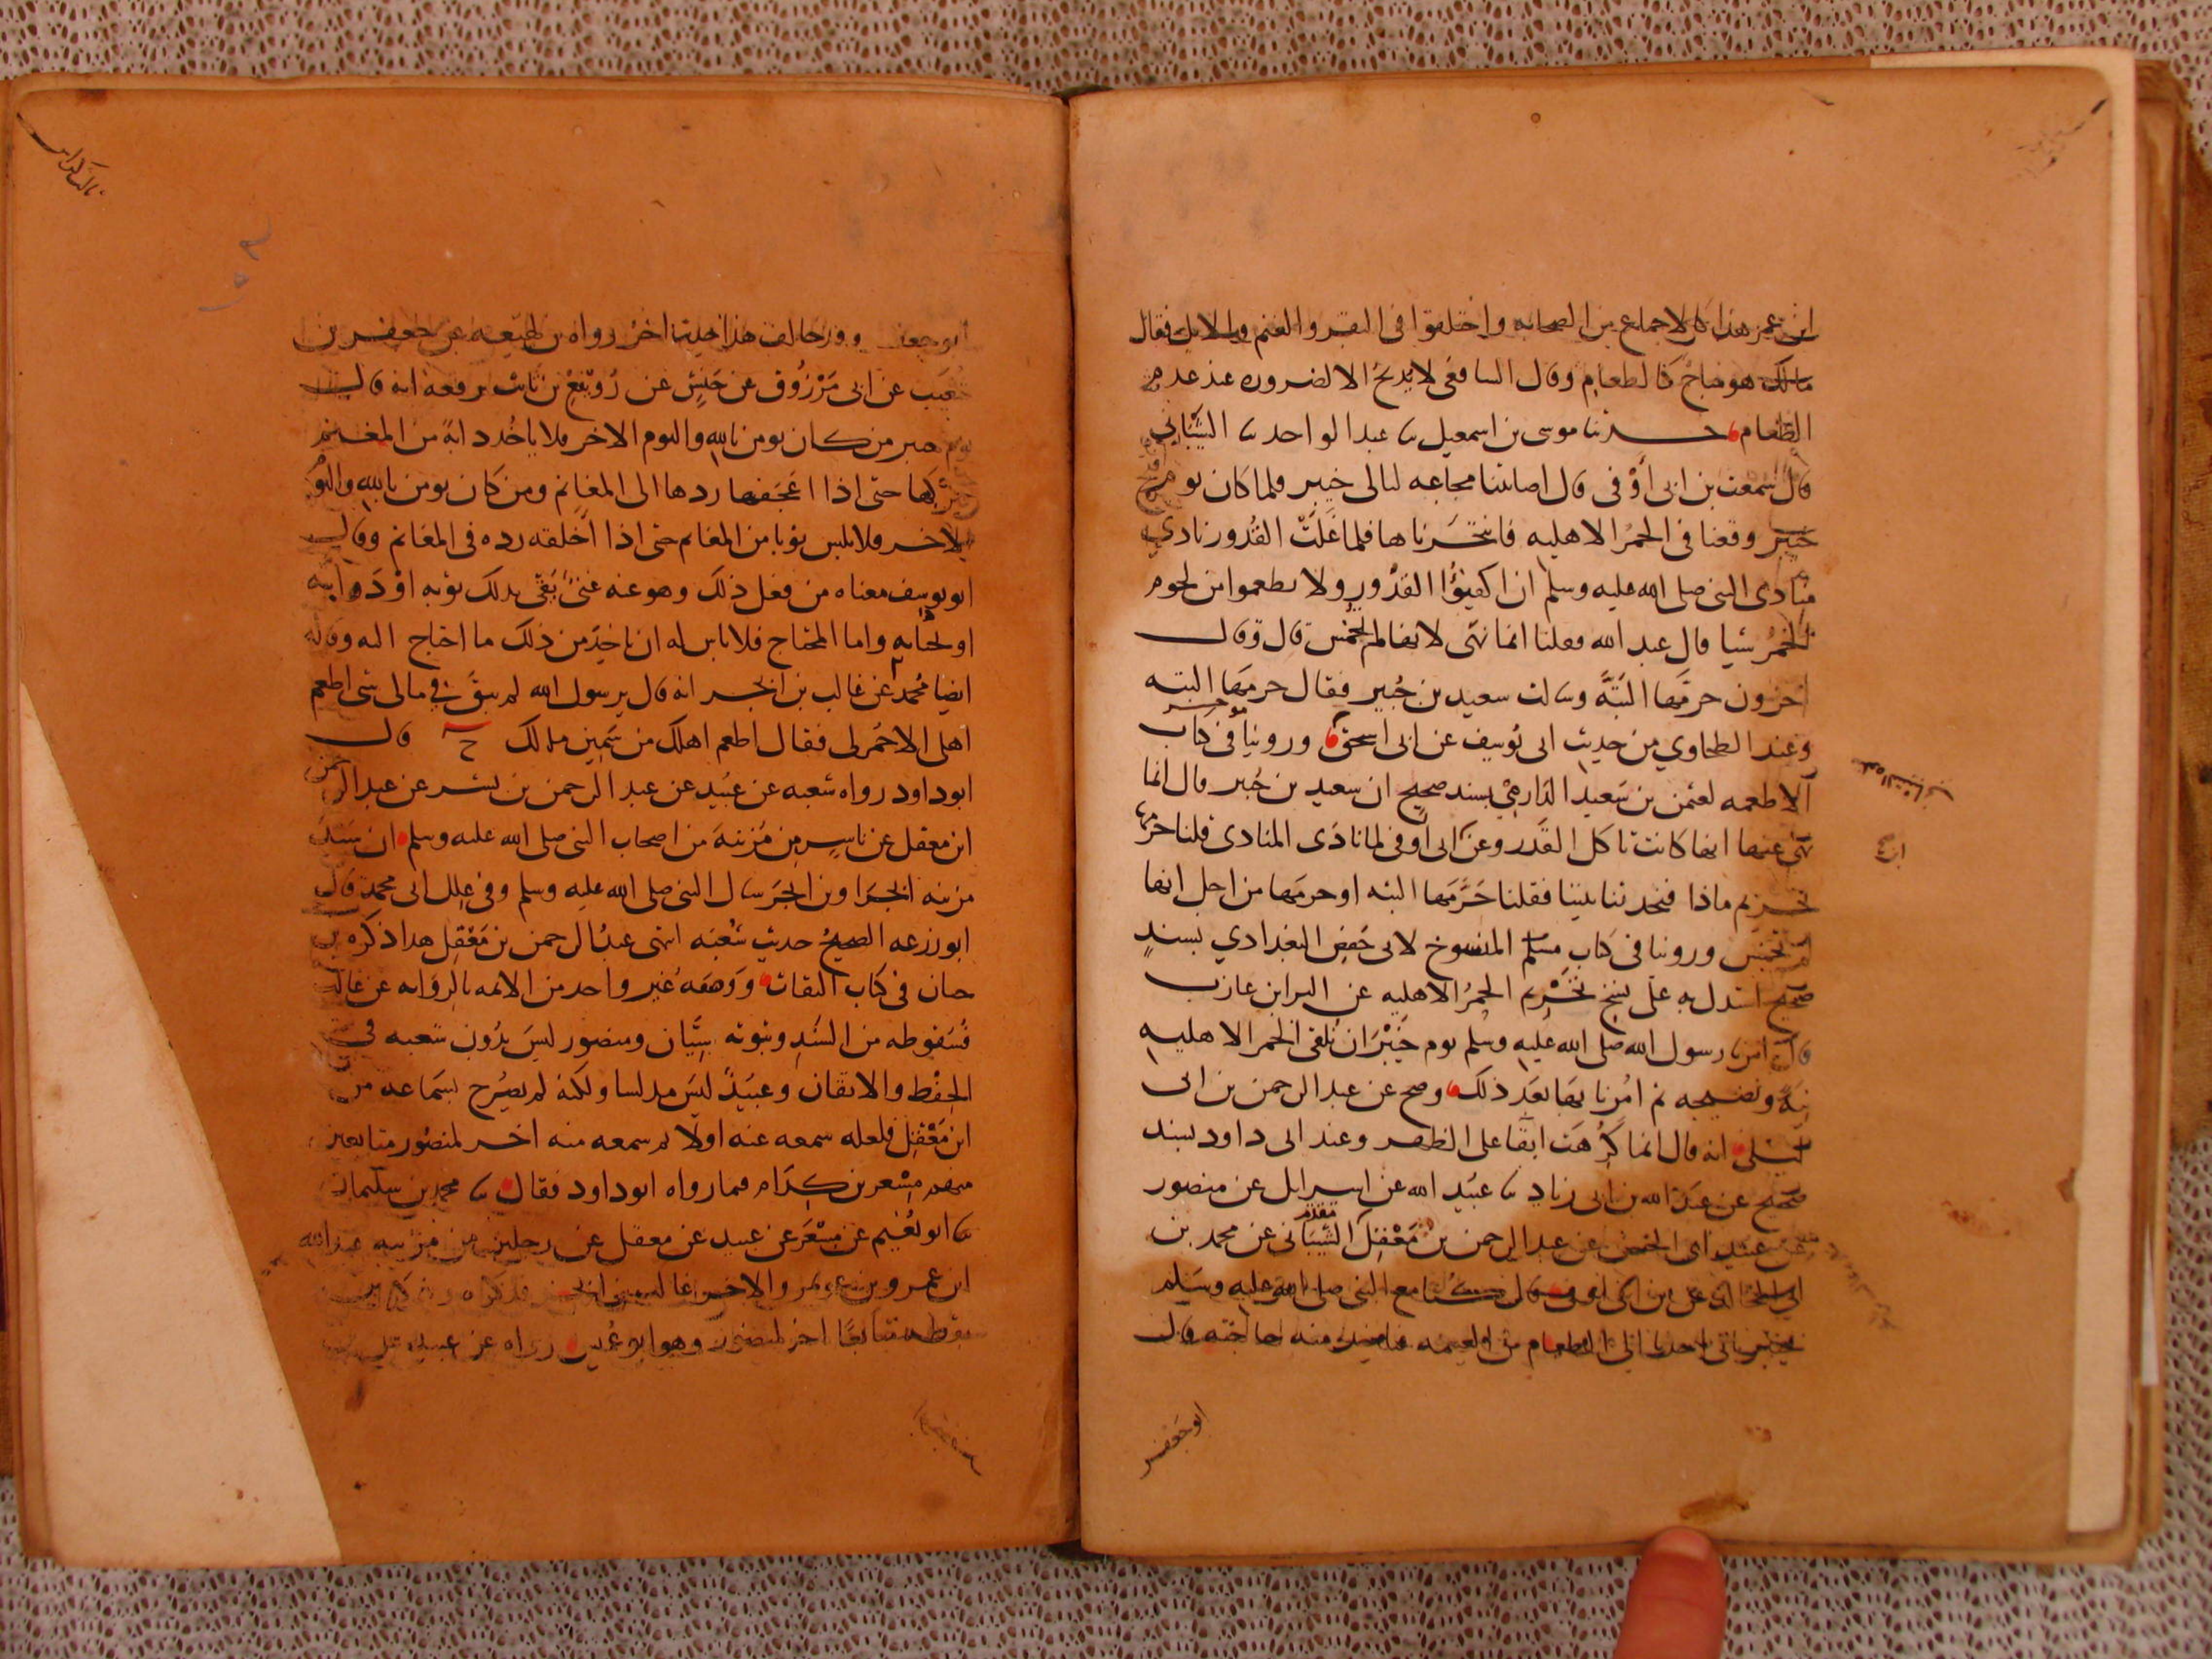 ابن عمر هذا كالاجماع من الصحابه واختلفوا فى البقر والغنم والابل فقال
مالك هو مباح كالطعام وقال الشافعى لا يذبح الا لضروره عند عدم
الطعام حدثنا موسى بن اسمعيل نا عبد الواحد نا الشيبانى
قال سمعت بن ابى أوْفى قال اصابتنا مجاعه ليالى خيبر فلما كان يوم
خيبر وقعنا فى الحمُر الاهليه فانتحرناها فلما غَلَتْ القُدور نادى
منادى النبى صلى الله عليه وسلم ان اكفِئُوا القدُور ولا تطعموا من لحوم
الحمُر شيا قال عبد الله فقلنا انما نهى لانها لم تخمس قال وقال
اخرون حرمَها البَتَّه وسالت سعيد بن جُبير فقال حرمَها البته
وعند الطحاوي من حديث ابى يُوسف عن ابى اسحق وروينا فى كتاب
الاطعمه لعثمن بن سَعيد الدَارمى بسند صحيح ان سعيد بن جُبير قال انما
نهى عنها انها كانت تاكل القَذر وعن ابى اوفى لما نادَى المنادى قلنا حرمها
تحريم ماذا فتحدثنا بيننا فقلنا حَرَّمَها البته او حرمَها من اجل انها
لم تخمس وروينا فى كتاب المنسوخ لابى حَفص البغدادي بسندٍ
صحيح استدل به على نسخ تَحْرِيم الحمُر الاهليه عن البرا بن عازب
قال امرنا رسول الله صلى الله عليه وسلم يوم خَيْبَر ان نُلقى الحمر الاهليه
نِيَّه ونضيجه ثم امُرنا بهَا بَعَد ذلك وصح عن عبد الرحمن بن ابى
ليلى انه قال انما كُرهَت ابقَا على الظهر وعند ابى داود بسند
صحيح عن عبَد الله بن ابى زياد نا عبَيد الله عن اسرايل عن منصور
عن عبَيد ابى الحسن عن عبد الرحمن بن مَعْقِل الشيبَانى عن محمد بن
ابى المجالد عن بن ابى اوفى قال كنا مع النبى صلى الله عليه وسَلم
بخيبر ياتى احدنا الى الطعام من الغنيمه فياخذ منه حاجته قال
ابو جعفر
ابو جعفر وقد خالف هذا حديث اخر رواه بن لهيعه عن جعفر بن
عن ابى مَرْزُوق عن حَنشٍ عن رُوَيْفع بن ثابت يرفعه انه قال
يوم خيبر من كان يومن بالله واليوم الاخر فلا ياخُد دابةً من المغنم
يركبها حتى اذا اعجفها ردها الى المغانم ومن كان يومن بالله واليوم
الاخر فلا يلبس ثوبا من المغانم حتى اذا اخلقه رده فى المغانم وقال
ابو يوسف معناه من فعل ذلك وهو عنه غنىً يَبقى بذلك ثوبه اوْ دَوابه
او لخيانه واما المحتاج فلا باس له ان ياخذ من ذلك ما احتاج اليه وقاله
ايضا مُحمد عن غالب بن ابجر انه قال يرسول الله لم يبقَ فى مالى شى اطعم
اهلى الا حُمر لى فقال اطعم اهلك من سَمين مالك قال
ابو داود رواه شعبه عن عُبَيد عن عبد الرحمن بن بشر عن عبد الرحمن
ابن معقل عن ناسٍ مِن مُزينه من اصحاب النبى صلى الله عليه وسلم ان سَيد
مزينه ابجَر او بن ابجَر سال النبى صلى الله عليه وسلم وفى علِل ابى محمد قال
ابو زرعه الصحيحُ حديث شُعبه انتهى عبدُ الرحمن بن مَعْقِل هدا ذكره بن
حبان فى كتاب الثقات ووَصَفه غير واحد من الايمه بالرِوَايه عن غالب
فسُقوطه من السَند وثبوته سِيَّان ومنصور ليسَ بدُون شعبه فى
الحفْظ والاتقان وعبَيدً ليَس مدلسا ولكنه لم يصُرح بسمَاعه من
ابن مَعْقِل فلعله سمعه عنه اولًا ثم سمعه منه اخر لمنصُور متابعين
منهم مِسْعر بن كدَام فيما رواه ابو داود فقال نا محمد بن سليمان
نا ابو نُعَيم عن مسْعَر عن عبيد عن معقل عن رجلين من مزينه عبد الله
ابن عمرو بن والاخر غالب بن ابجر
متابعًا اخر لمنصور وهو ابو عُميس رواه عن عبيد